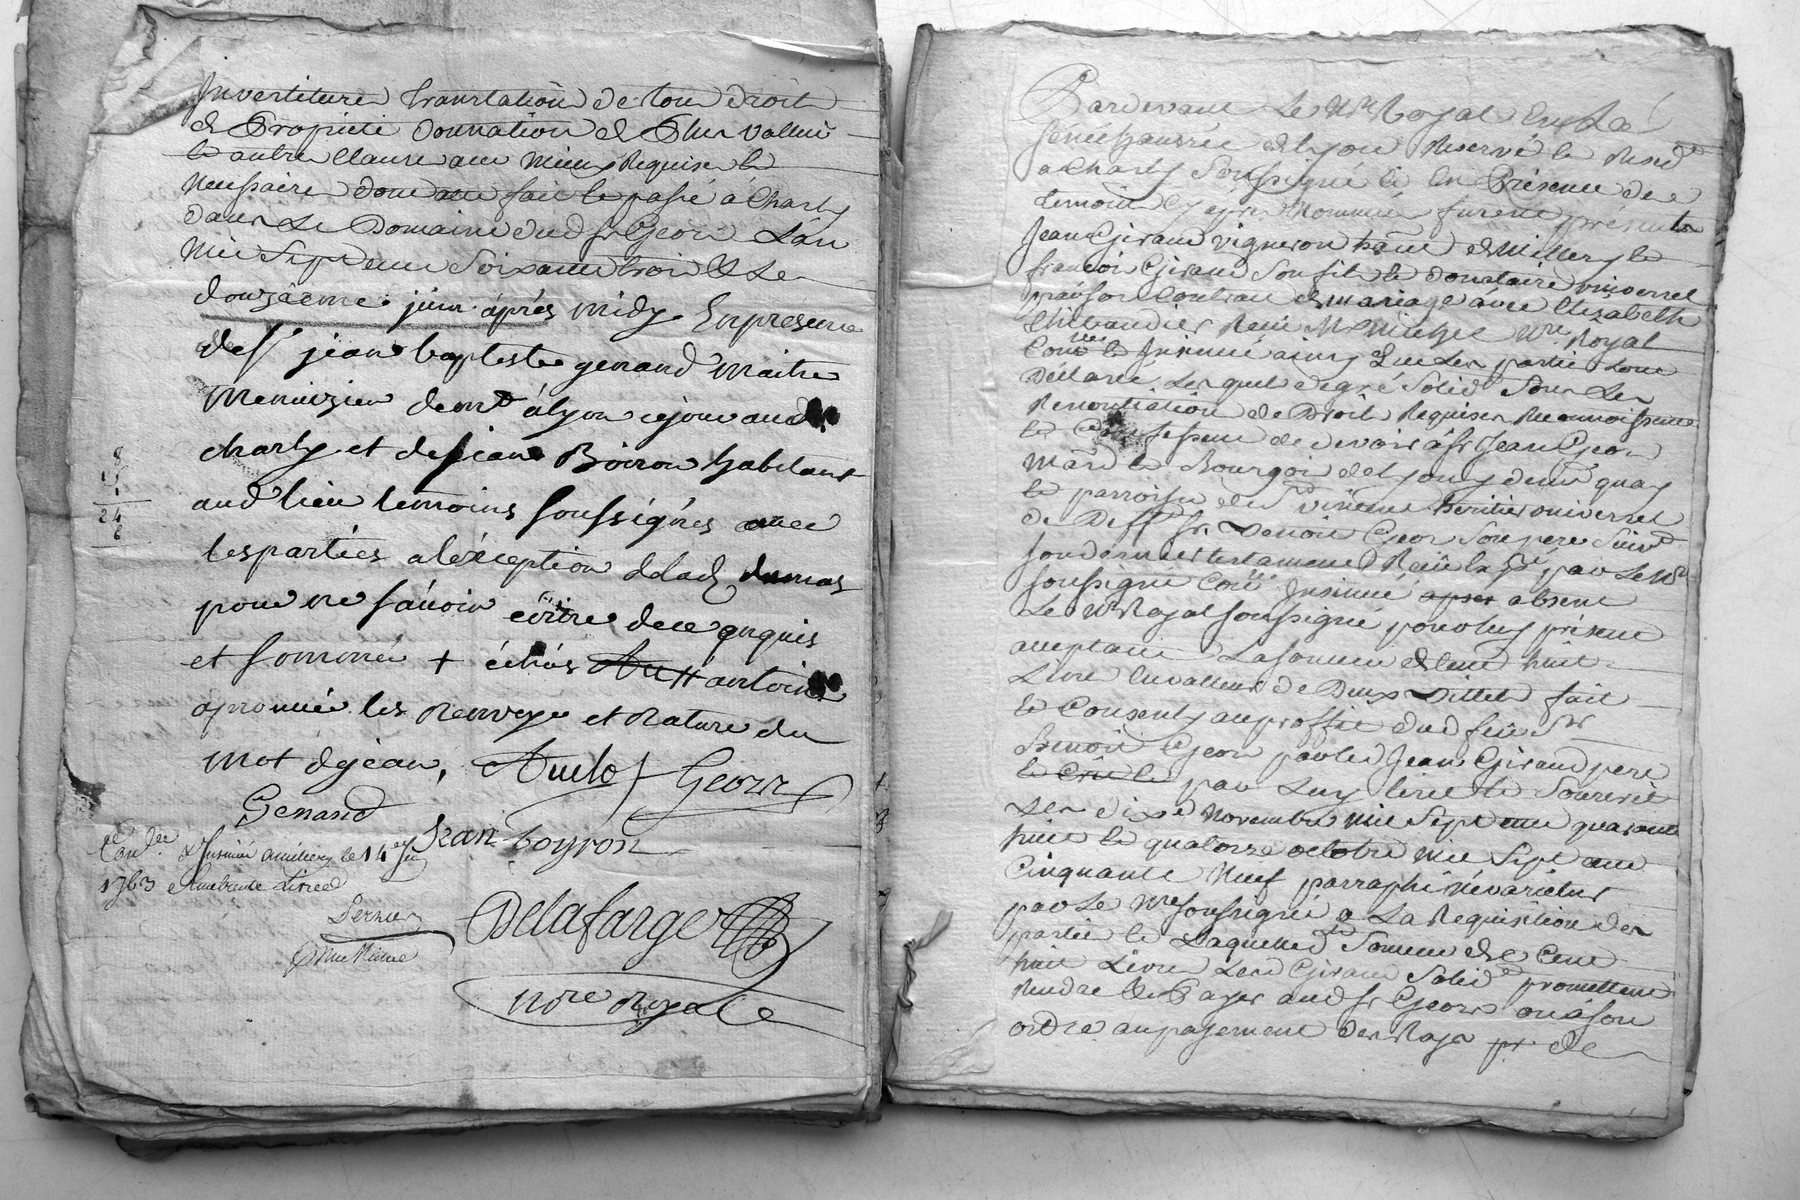 Investiture translation de tous droits
de Propriété donnation de Plus vallue
et autres Clause aux Mieux Requises et
Necessaire donc acte fait et passé a Charly
dans Le Domaine dud Sr Geors L'an
Mil Sept cent Soixante trois & Le
douzieme juin après midy En presence
de Sr jean baptiste genand Maitre
Menuizier demt a lyon cejour aud
charly et de jean Boiron habitant
aud lieu temoins soussignes avec
les parties a l'exception de lad dumas
pour ne savoir écrire de ce enquis
et sommée + antoine
aprouvé les Renvoye et Rature du
mot de jean,
Geors
Genand
Jean boyron
Con Insinué a millery le 14e juin
1763
Delafarge
Nore royale
8
24
6
Pardevant Le Nre Royal En La
Sénéchaussée de Lyon Reservé et Resid
a Charly Soussigné et En Présence des
temoins Cy apres Nommés furent présents
Jean Giraud vigneron hant de Millery et
francois Giraud Son fils et donataire universel
par son Contrau de mariage avec Elizabeth
Thibaudier Reçu Me Nre Royal
et Insinué ainsy que Les parties L'ont
Déclaré, Lesquels de gré Solid Sous Les
Renontiation de Droit Requises Reconnoissent
et Confessent de devoir a Sr Jean Geors
Mard et Bourgois de Lyon y demt quay
et parroisse de St vincent heritier universel
de Defft Sr Benoit Geors Son pere Suivt
son dernier testament Reçu par Le Nre
soussigné Insinué absent
Le Nre Royal soussigné pour luy présent
acceptant La somme de Cent huit
Livre En valleur de Deux Billets fait
et Consenty au proffit dud feu Sr
Benoit Geors par led Jean Giraud pere
et par Luy
Les dixe Novembre mil Sept cent quarante
huit et quatorze octobre mil Sept cent
Cinquante Neuf parraphé Névarietur
par Le Nre soussigné a La Requisition des
partie et Laquelled Somme de Cent
huit Livres Lesd Giraud Solidt promettent
Rendre & Payer aud Sr Geors ou a son
ordre au payement des Rays pr de